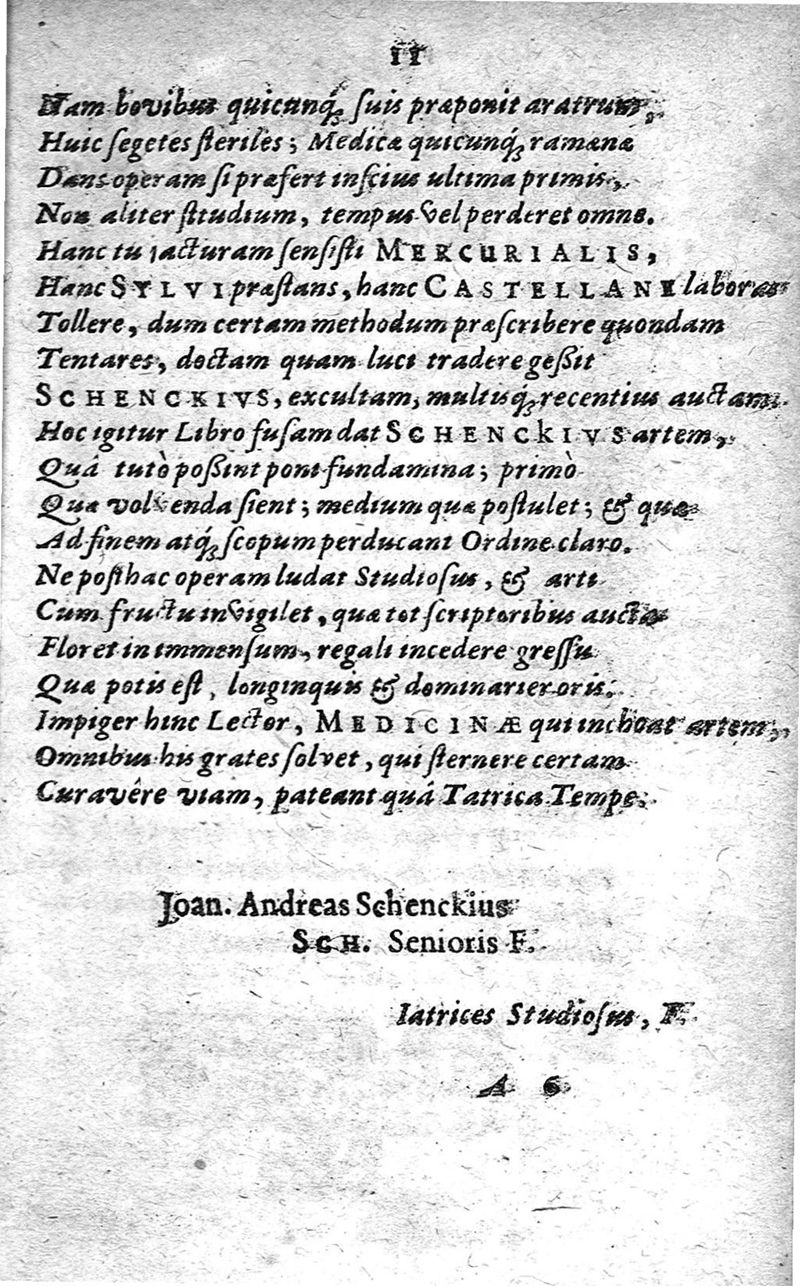 11
Nam bovibus quicunq́ꝫ ſuis præponit aratrum,
Huic ſegetes ſteriles; Medicæ quicunq́ꝫ ramenæ
Dans operam ſi præfert inſcius ultima primis,
Non aliter ſtudium, tempus vel perderet omne.
Hanc tu jacturam ſenſiſti MERCURIALIS,
Hanc SYLVI præſtans, hanc CASTELLANE laboras
Tollere, dum certam methodum præſcribere quondam
Tentares, doctam quam luci tradere geßit
SCHENCKIVS, excultam, multisq́ꝫ recentius auctam.
Hoc igitur Libro fuſam dat SCHENCKIVS artem,
Quâ tutò poßint poni fundamina; primò
Quæ volvenda ſient; medium quæ poſtulet; & quæ
Ad finem atq́ꝫ ſcopum perducant Ordine claro.
Ne poſthac operam ludat Studioſus, & arti
Cum fructu invigilet, quæ tot ſcriptoribus aucta
Floret in immenſum, regali incedere greſſu
Quæ potis eſt, longinquis & dominarier oris.
Impiger hinc Lector, MEDICINÆ qui inchoat artem,
Omnibus his grates ſolvet, qui ſternere certam
Curavêre viam, pateant quâ Tatrica Tempe.
Joan. Andreas Schenckius
SCH. Senioris F.
Iatrices Studioſus, F.
A 6